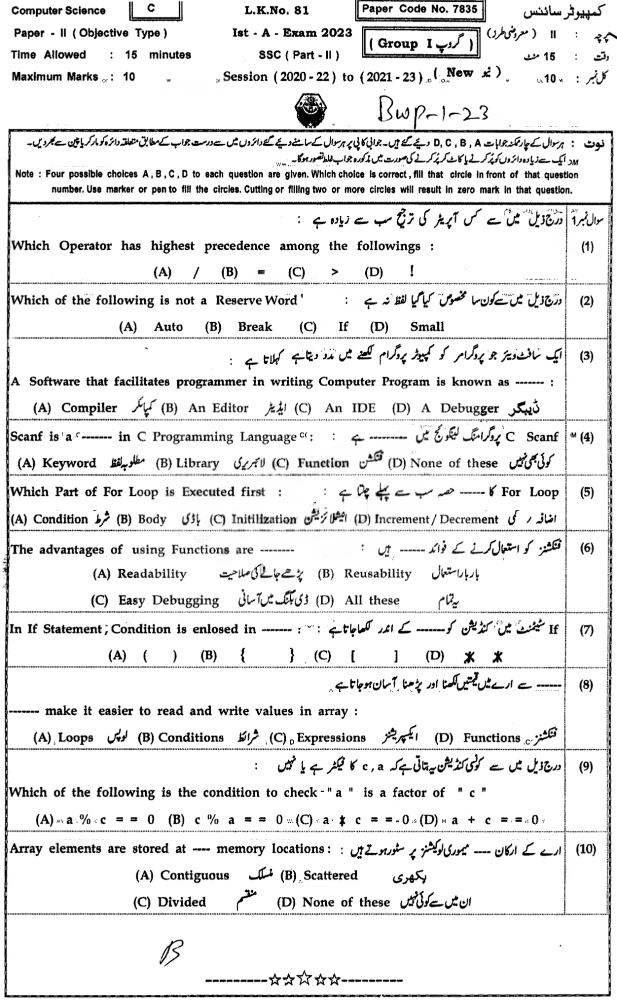 Computer Science C L.K.No. 81 Paper Code No. 7835 کمپیوٹر سائنس
Paper - II (Objective Type) Ist - A - Exam 2023 (Group I گروپ) پرچہ : II (معروضی طرز)
Time Allowed : 15 minutes SSC (Part - II) وقت : 15 منٹ
Maximum Marks : 10 Session (2020 - 22) to (2021 - 23) (New نیو) کل نمبر : 10
BWP-1-23
نوٹ : ہر سوال کے چار ممکنہ جوابات D, C, B, A دیئے گئے ہیں۔ جوابی کاپی پر ہر سوال کے سامنے دیئے گئے دائروں میں سے درست جواب کے مطابق متعلقہ دائرہ کو مارکر یا پین سے بھر دیں۔
ایک سے زیادہ دائروں کو پُر کرنے یا کاٹ کر پُر کرنے کی صورت میں مذکورہ جواب غلط تصور ہوگا۔
Note : Four possible choices A, B, C, D to each question are given. Which choice is correct, fill that circle in front of that question
number. Use marker or pen to fill the circles. Cutting or filling two or more circles will result in zero mark in that question.
سوال نمبر 1 درج ذیل میں سے کس آپریٹر کی ترجیح سب سے زیادہ ہے :
Which Operator has highest precedence among the followings : (1)
(A) / (B) = (C) > (D) !
Which of the following is not a Reserve Word : درج ذیل میں سے کون سا مخصوص کیا گیا لفظ نہ ہے (2)
(A) Auto (B) Break (C) If (D) Small
ایک سافٹ ویئر جو پروگرامر کو کمپیوٹر پروگرام لکھنے میں مدد دیتا ہے کہلاتا ہے : (3)
A Software that facilitates programmer in writing Computer Program is known as ------ :
(A) Compiler کمپائلر (B) An Editor ایڈیٹر (C) An IDE (D) A Debugger ڈیبگر
Scanf is a ------- in C Programming Language : C Scanf پروگرامنگ لینگوئج میں --------- ہے (4)
(A) Keyword مطلوبہ لفظ (B) Library لائبریری (C) Function فنکشن (D) None of these کوئی بھی نہیں
Which Part of For Loop is Executed first : For Loop کا ------ حصہ سب سے پہلے چلتا ہے : (5)
(A) Condition شرط (B) Body باڈی (C) Initilization انیشلائزیشن (D) Increment / Decrement اضافہ / کمی
The advantages of using Functions are -------- فنکشنز کو استعمال کرنے کے فوائد ------ ہیں : (6)
(A) Readability پڑھے جانے کی صلاحیت (B) Reusability بار بار استعمال
(C) Easy Debugging ڈی بگنگ میں آسانی (D) All these یہ تمام
In If Statement, Condition is enlosed in ------- : If سٹیٹمنٹ میں کنڈیشن کو ------ کے اندر لکھا جاتا ہے : (7)
(A) ( ) (B) { } (C) [ ] (D) * *
------ سے ارے میں قیمتیں لکھنا اور پڑھنا آسان ہو جاتا ہے۔ (8)
------- make it easier to read and write values in array :
(A) Loops لوپس (B) Conditions شرائط (C) Expressions ایکسپریشنز (D) Functions فنکشنز
درج ذیل میں سے کونسی کنڈیشن یہ بتاتی ہے کہ c , a کا فیکٹر ہے یا نہیں : (9)
Which of the following is the condition to check - "a" is a factor of "c"
(A) a % c = = 0 (B) c % a = = 0 (C) a * c = = 0 (D) a + c = = 0
Array elements are stored at ---- memory locations : ارے کے ارکان ---- میموری لوکیشنز پر سٹور ہوتے ہیں : (10)
(A) Contiguous منسلک (B) Scattered بکھری
(C) Divided منقسم (D) None of these ان میں سے کوئی نہیں
B
---------☆☆☆☆☆---------